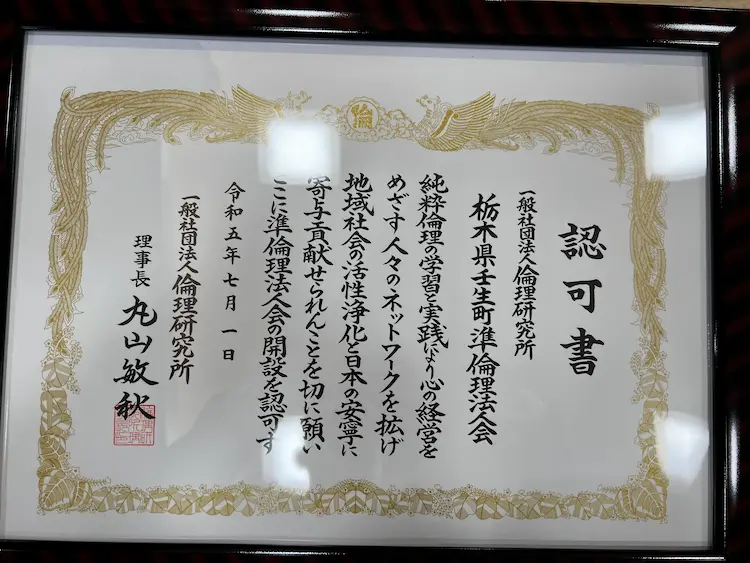 倫
認可書
一般社団法人倫理研究所
栃木県壬生町準倫理法人会
純粋倫理の学習と実践により心の経営を
めざす人々のネットワークを拡げ
地域社会の活性浄化と日本の安寧に
寄与貢献せられんことを切に願い
ここに準倫理法人会の開設を認可す
令和五年七月一日
一般社団法人倫理研究所
理事長 丸山敏秋